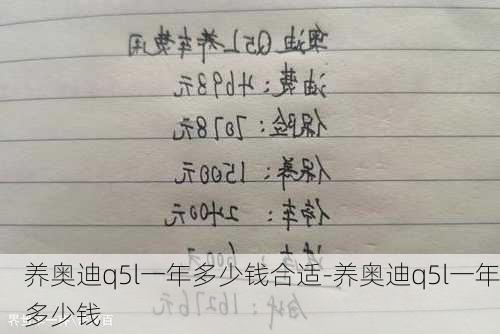 奥迪Q5L养车费用
油费：4698元
保险：7078元
保养：1500元
停车：2400元
600元
合计：16276元
养奥迪q5l一年多少钱合适-养奥迪q5l一年
多少钱